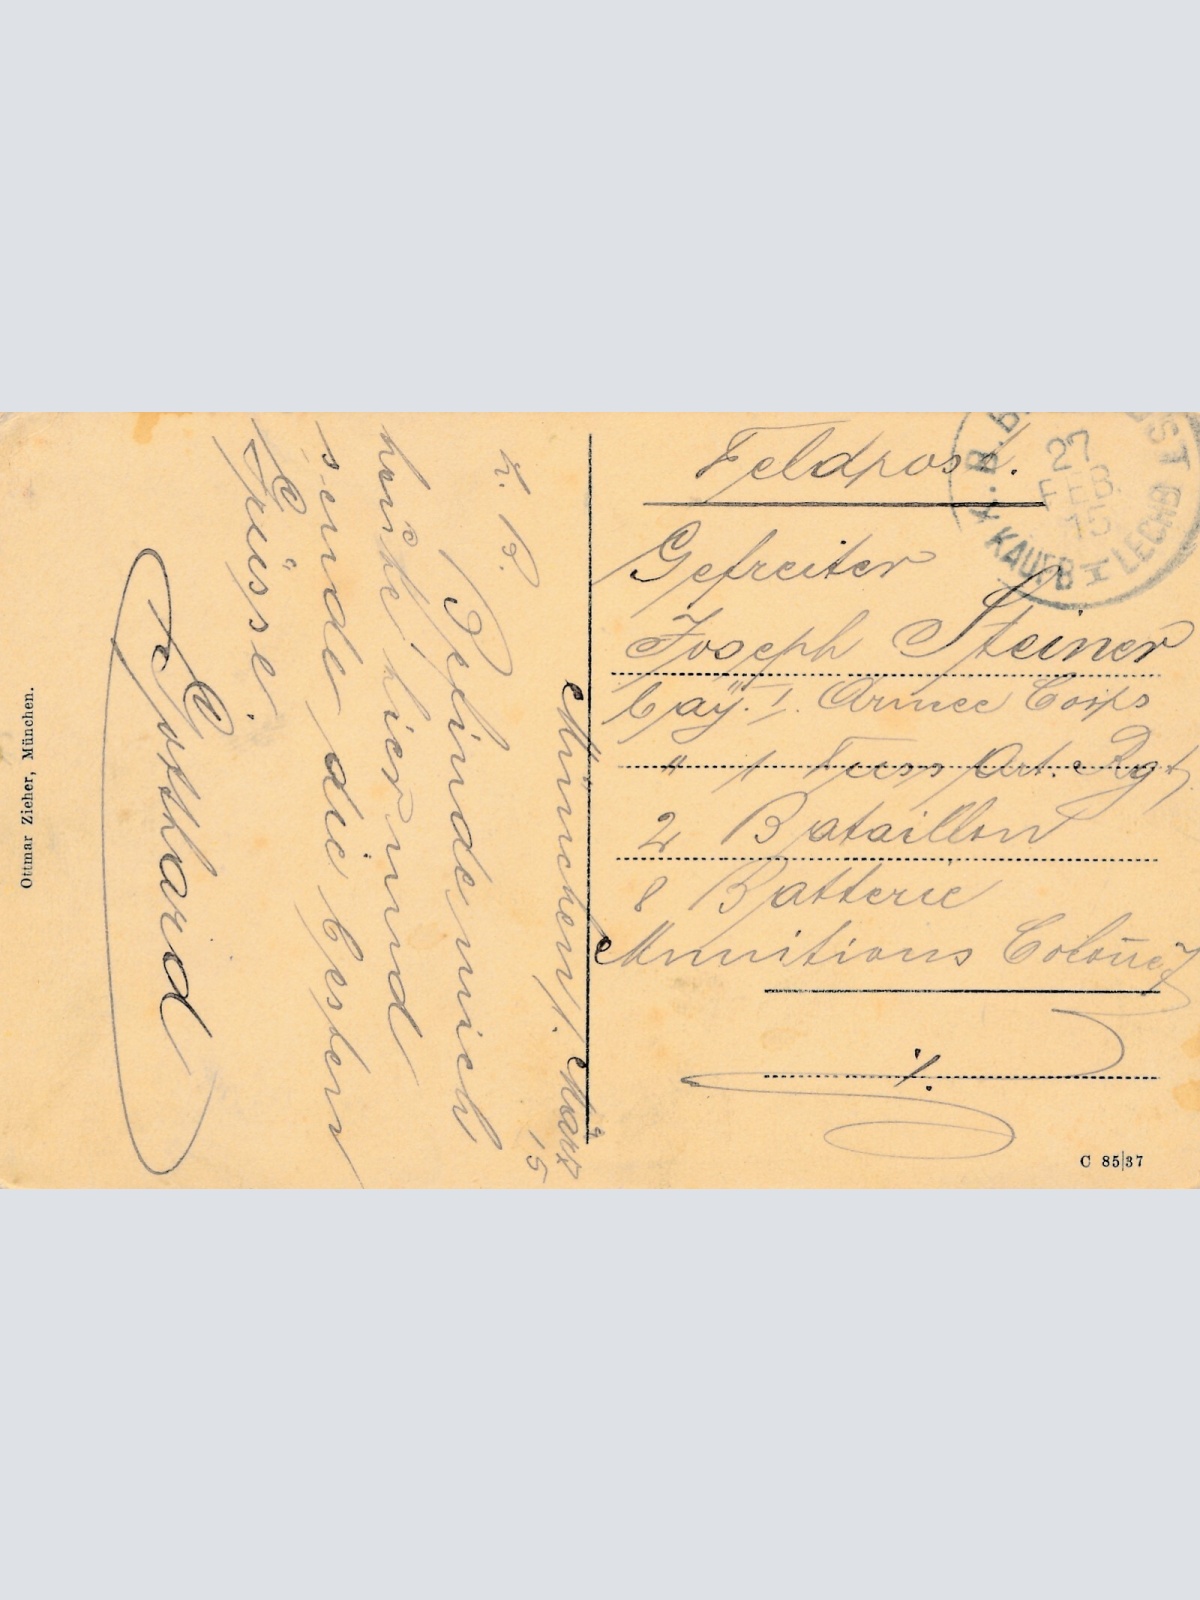 Feldpost.
Gefreiter
Joseph Steiner
bay. I. Armee Corps
" 1 Fuss Art. Rgt.
2 Bataillon
8 Batterie
Munitions Colonne
München, 1. März
15
L. B.
Befinde mich
heute hier und
sende die besten
Grüsse.
Gotthard
K.B.B.
27
FEB
15
KAUFB I LECHB
Ottmar Zieher, München.
C 85|37